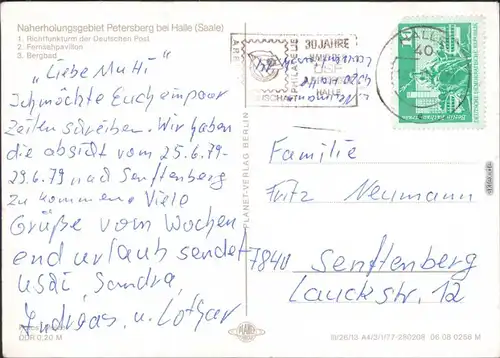 Naherholungsgebiet Petersberg bei Halle (Saale)
1. Richtfunkturm der Deutschen Post
2. Fernsehpavillon
3. Bergbad
„Liebe Mutti"
Ich möchte Euch ein paar
Zeilen schreiben. Wir haben
die absicht vom 25.6.79-
29.6.79 nach Senftenberg
zu kommen. Viele
Grüße vom Wochen
endurlaub sendet
Usai, Sandra,
Andreas u. Lothar
DDR 0,20 M
PLANET-VERLAG BERLIN
PHILATELIE
30 JAHRE
HALLE
HALLE
40
10
Familie
Fritz Neumann
7840 Senftenberg
Lauckstr. 12
III/26/13 A4/3/1/77-280208 06 08 0258 M